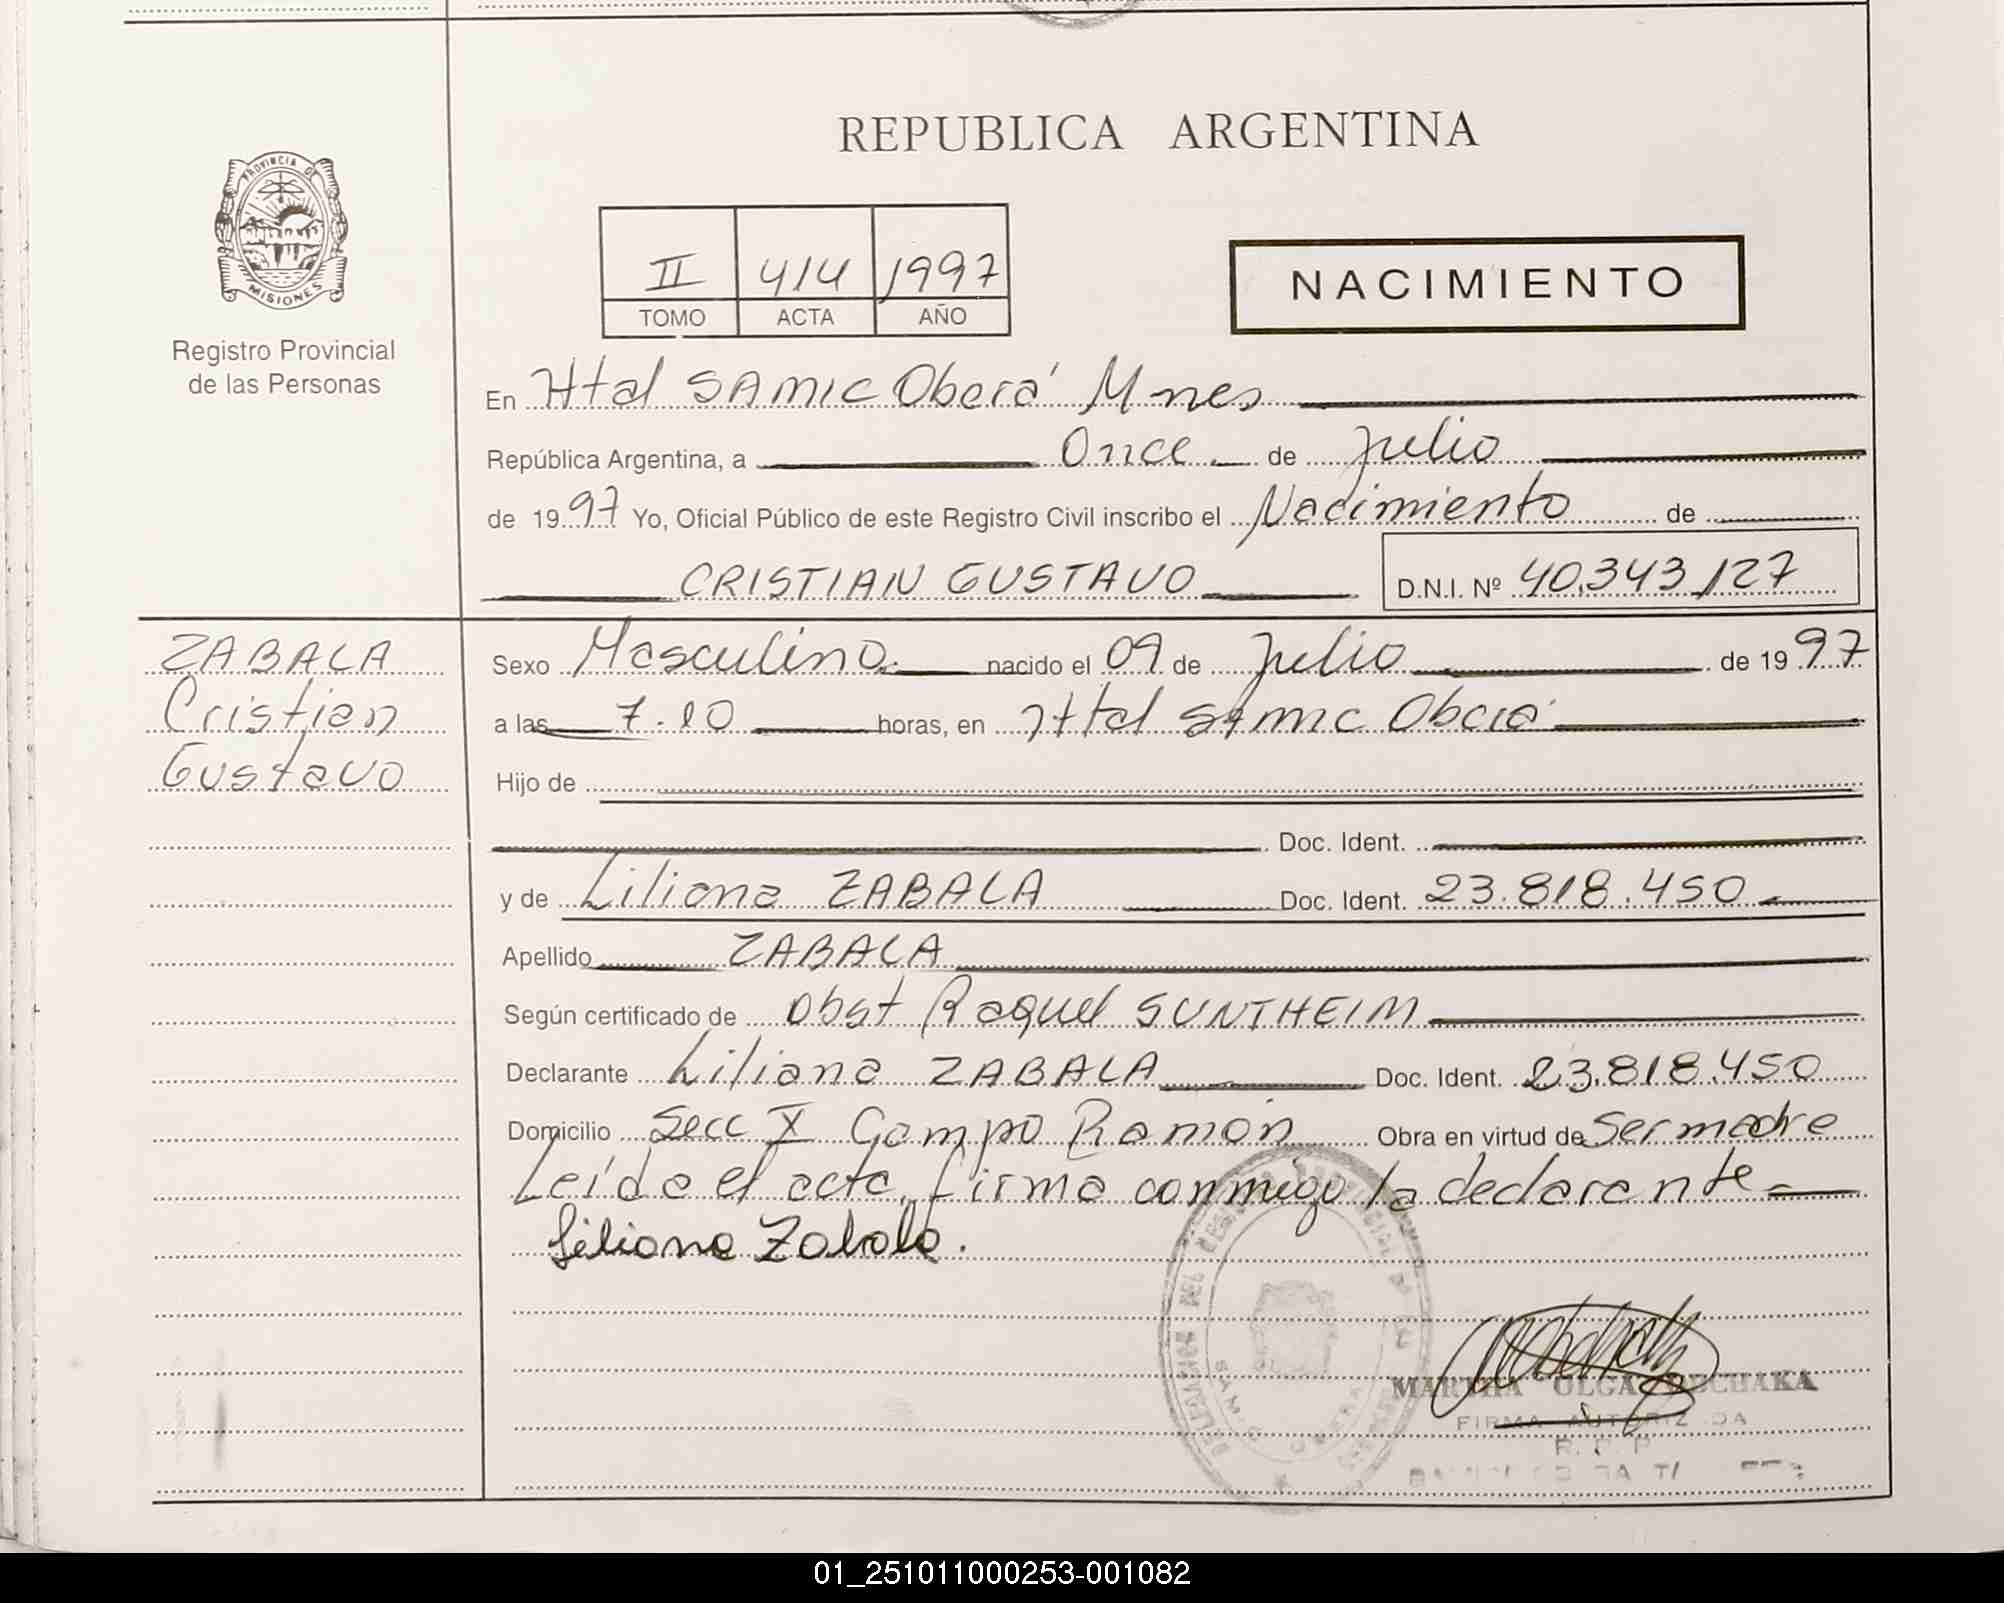 REPUBLICA ARGENTINA
PROVINCIA DE
MISIONES
Registro Provincial
de las Personas
II 414 1997
TOMO ACTA AÑO
NACIMIENTO
En Htal SAMIC Oberá Mnes
República Argentina, a Once de Julio
de 1997 Yo, Oficial Público de este Registro Civil inscribo el Nacimiento de
CRISTIAN GUSTAVO D.N.I. Nº 40.343.127
ZABALA
Cristian
Gustavo
Sexo Masculino nacido el 09 de Julio de 1997
a las 7.10 horas, en Htal Samic Oberá
Hijo de
Doc. Ident.
y de Liliana ZABALA Doc. Ident. 23.818.450
Apellido ZABALA
Según certificado de Obst Raquel SUNTHEIM
Declarante Liliana ZABALA Doc. Ident. 23.818.450
Domicilio Secc X Campo Ramón Obra en virtud de Ser madre
Leída el acta, firma conmigo la declarante
Liliana Zabala.
MARTHA OLGA
FIRMA AUTORIZADA
R. P. P.
01_251011000253-001082